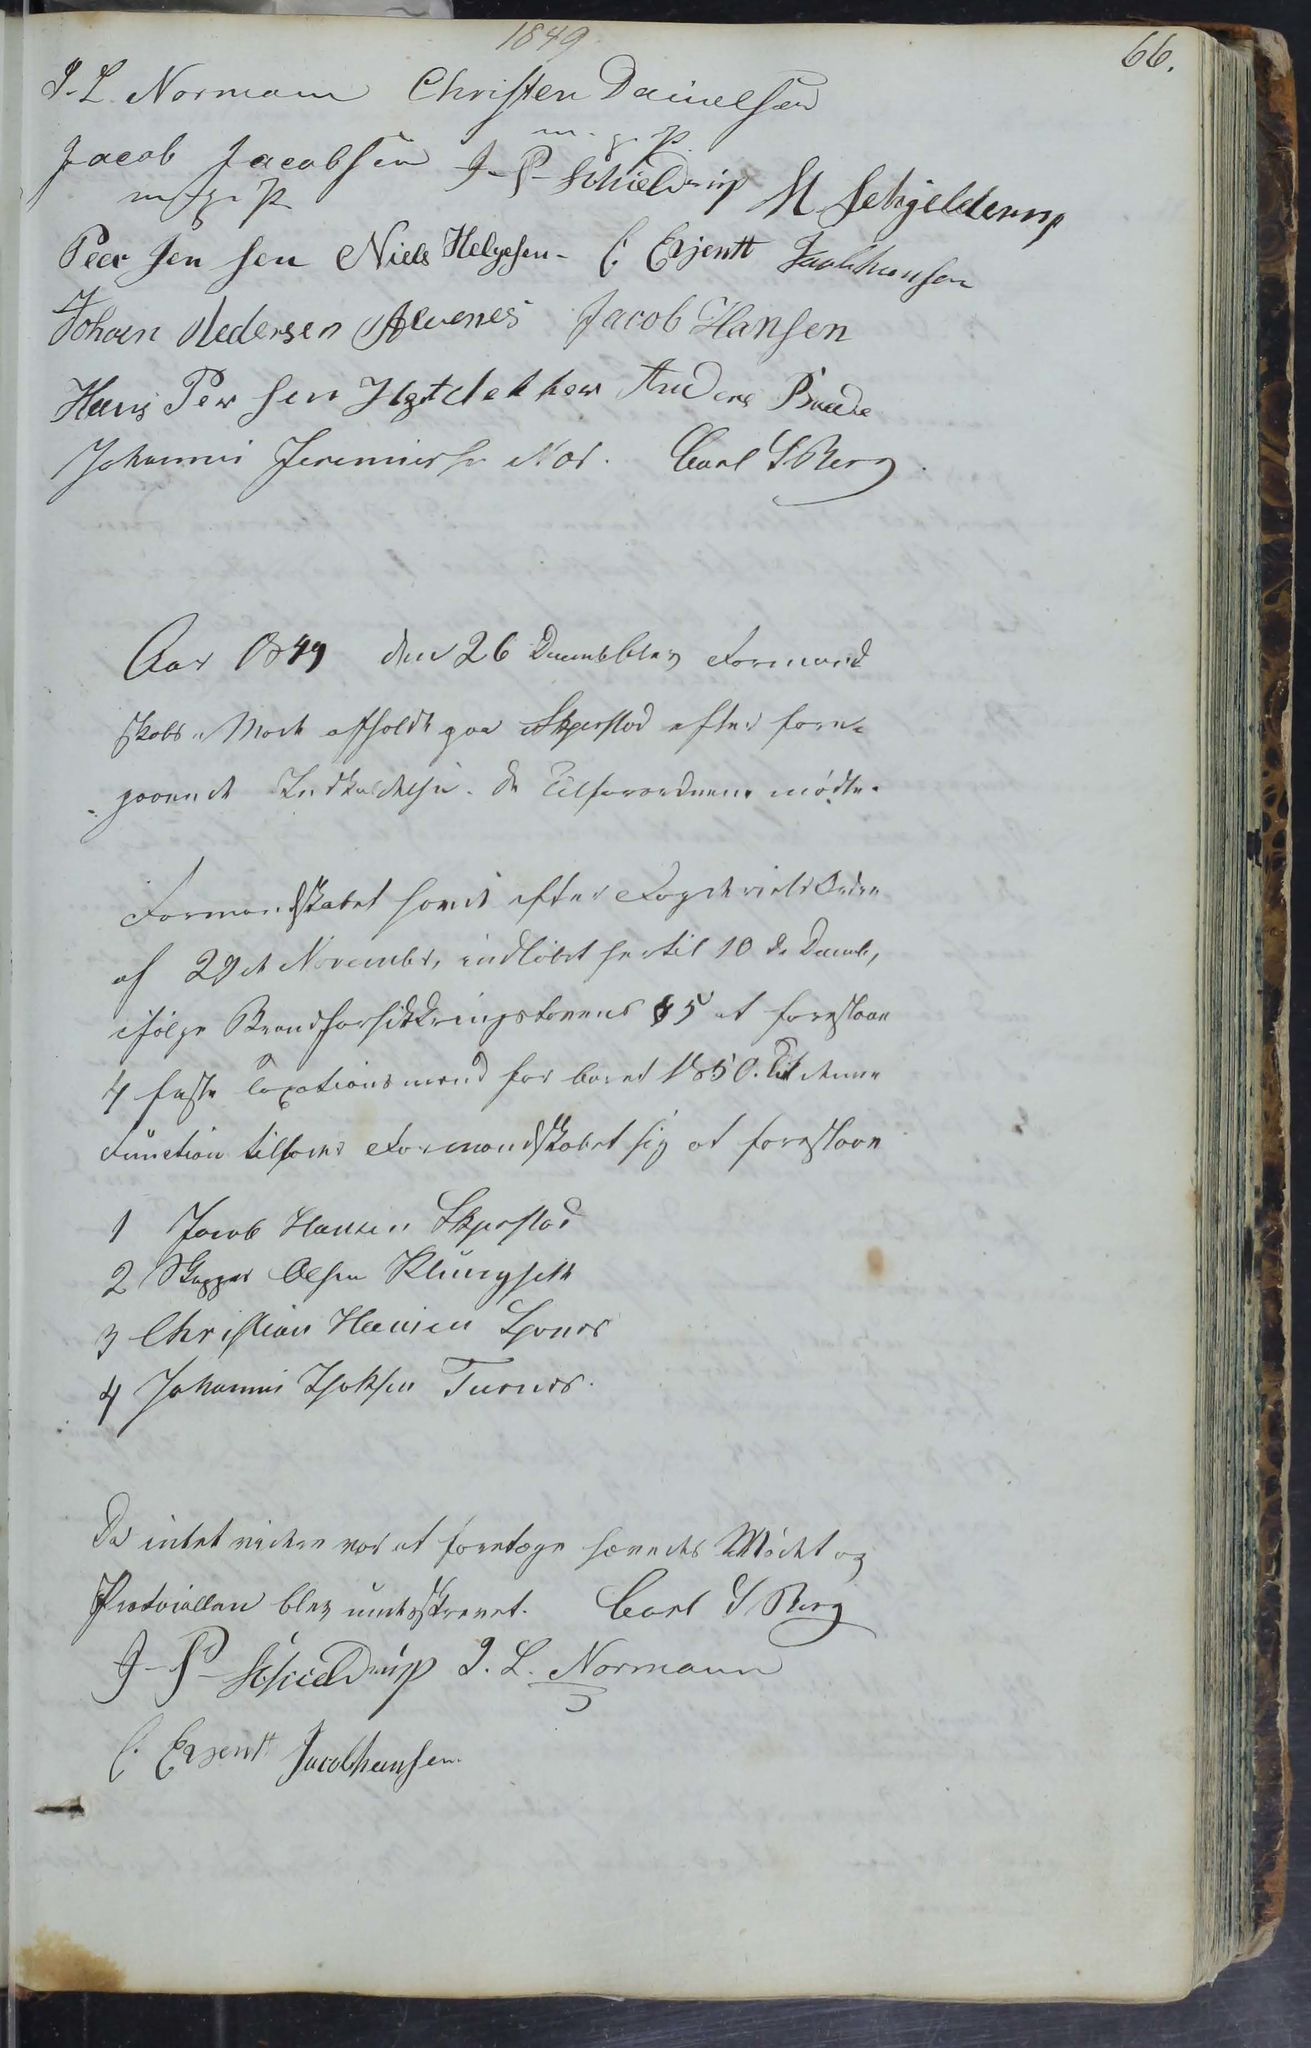 1849
66.
J. L. Normann Christen Danielsen
m. g. P.
Jacob Jacobsen J. P. Schieldrup M Schjelderup
m. g. P.
Peer Jensen Niels Helgesen. C. Ejentt Jacobhansen
Johan Pedersen Alvenes Jacob Hansen
Hans Persen Anders
Johannes Jeremiass Nos. Carl S Berg.
Aar 1849 den 26 Decemb blev Formand
skabs Møde afholdt paa Skjerstad efter fore-
gaaende Indkaldelse. De Tilforordnene mødte.
Formandskabet havde efter Fogderiets Ordre
af 29de November, indløbet hertil 10de Decemb,
ifølge Brandforsikkringslovens § 5 at foreslaae
4 faste Taxationsmænd for Aaret 1850. Til denne
Function tilfandt Formandskabet sig at foreslaae
1 Jacob Hansen Skjerstad
2 Olsen Klungseth
3 Christian Hansen
4 Johannes Isaksen Turnes.
Da intet videre var at foretage hævedes Mødet og
Protocollen blev underskrevet. Carl S Berg
J. P. Schieldrup J. L. Normann
C. Ejentt Jacobhansen